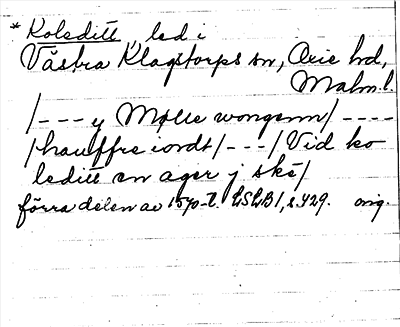 * Koleditt, led i
Västra Klagstorps sn, Oxie hd,
Malm.l.
/--- y Mølle wongenn/ ----
/hauffre iordt/---/ Vid ko
leditt en ager j ske/
förra delen av 1570-t. LSLB1, 2429. orig.